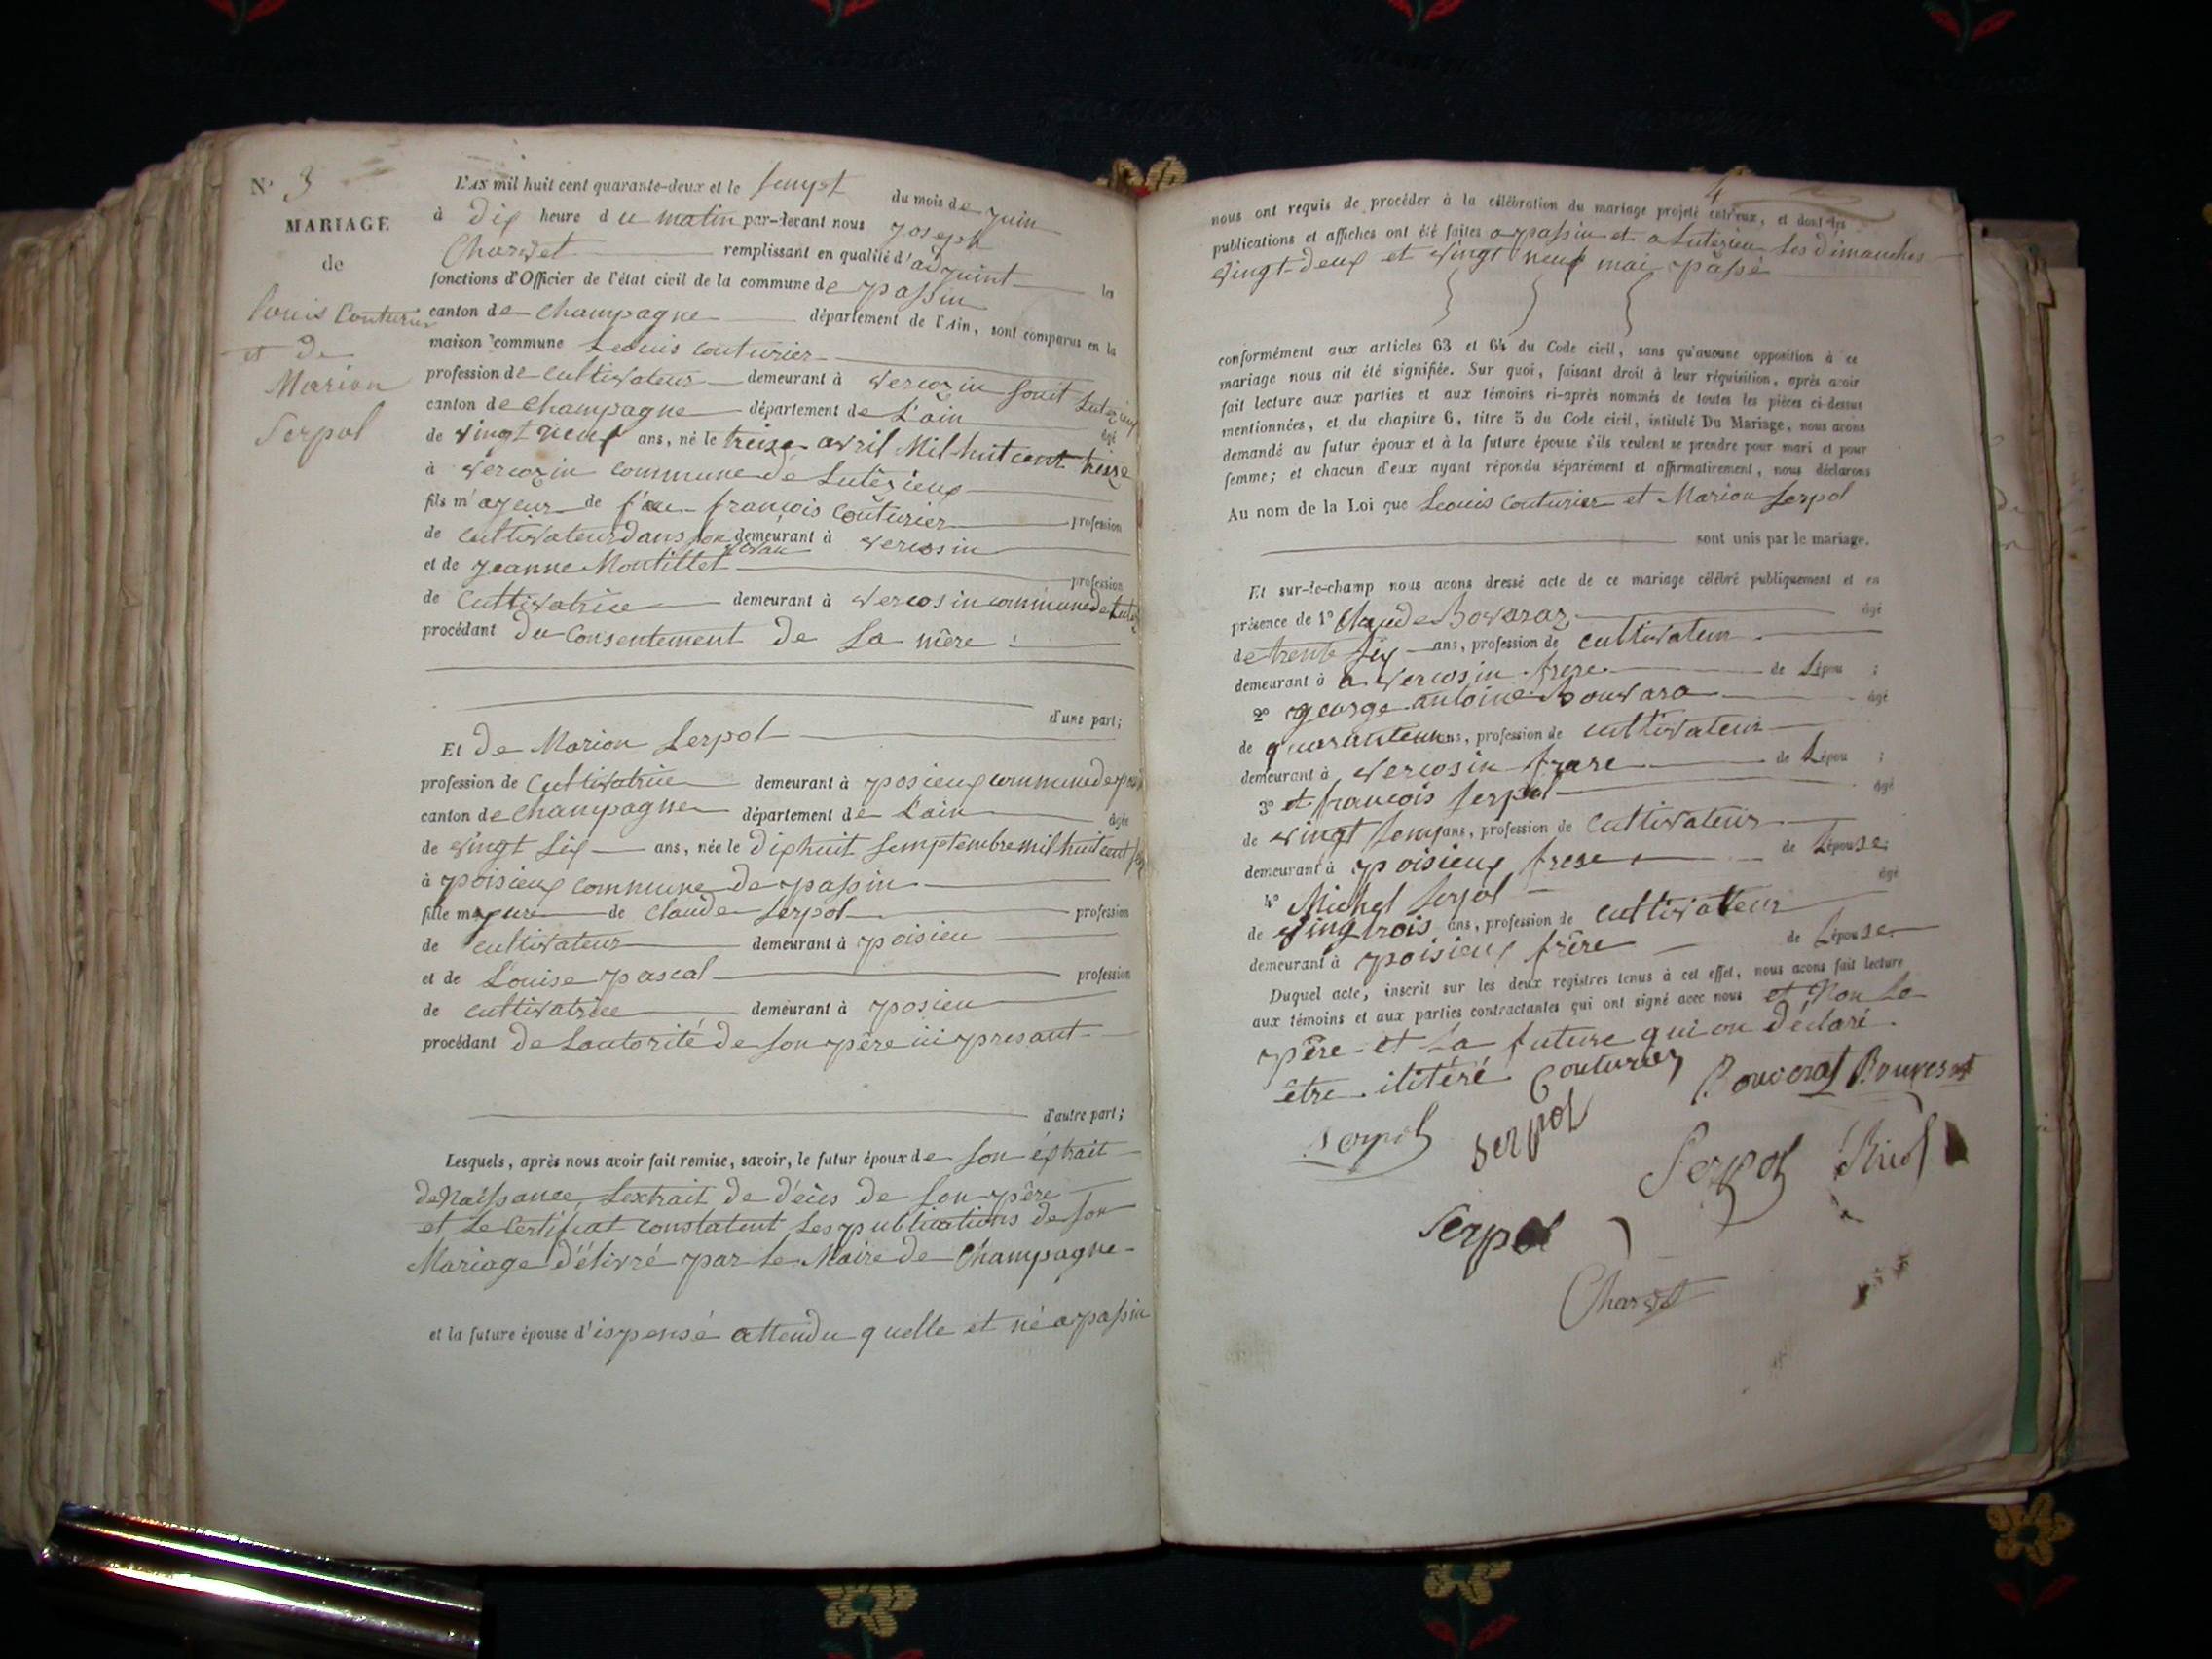 N° 3
MARIAGE
de
Louis Couturier
et de
Marion
Serpol
L'AN mil huit cent quarante-deux et le du mois de juin
à dix heure du matin par-devant nous joseph
Charvet remplissant en qualité d'adjoint les
fonctions d'Officier de l'état civil de la commune de passin
canton de Champagne département de l'Ain, sont comparus en la
maison commune Leouis couturier
profession de cultivateur demeurant à vercozin
canton de Champagne département de L'ain âgé
de vingt neuf ans, né le treize avril Mil huit cent treize
à vercozin commune de Luterieux
fils majeur de feu francois Couturier profession
de cultivateur dans son vivan demeurant à vercosin
et de jeanne Montillet profession
de cultivatrice demeurant à vercosin commune de
procédant du Consentement de sa mère :
d'une part;
Et de Marion Serpol
profession de Cultivatrice demeurant à posieux commune de
canton de Champagne département de L'ain âgée
de vingt six ans, née le dixhuit semptembre mil huit cent
à poisieux commune de passin
fille majeure de Claude Serpol profession
de cultivateur demeurant à poisieu
et de Louise pascal profession
de cultivatrice demeurant à posieu
procédant de Lautorité de son père ici presant
d'autre part;
Lesquels, après nous avoir fait remise, savoir, le futur époux de son éxtrait
de Naissance, Lextrait de décès de son père
et Le Certificat constatent Les publications de son
Mariage délivré par Le Maire de Champagne
et la future épouse dispensé attendu quelle et né a passin
4
nous ont requis de procéder à la célébration du mariage projeté entr'eux, et dont les
publications et affiches ont été faites a passin et a Luterieu Les dimanches
vingt-deux et vingt neuf mai passé
conformément aux articles 63 et 64 du Code civil, sans qu'aucune opposition à ce
mariage nous ait été signifiée. Sur quoi, faisant droit à leur réquisition, après avoir
fait lecture aux parties et aux témoins ci-après nommés de toutes les pièces ci-dessus
mentionnées, et du chapitre 6, titre 5 du Code civil, intitulé Du Mariage, nous avons
demandé au futur époux et à la future épouse s'ils veulent se prendre pour mari et pour
femme; et chacun d'eux ayant répondu séparément et affirmativement, nous déclarons
Au nom de la Loi que Leouis Couturier et Marion Serpol
sont unis par le mariage.
Et sur-le-champ nous avons dressé acte de ce mariage célébré publiquement et en
présence de 1° Claude Bovaraz âgé
de trente six ans, profession de cultivateur
demeurant à a vercosin frere de Lépou ;
2° george antoine Bouvara âgé
de quaranteun ans, profession de cultivateur
demeurant à vercosin frare de Lépou ;
3° et francois Serpol âgé
de vingt ans, profession de Cultivateur
demeurant à poisieux frese de Lépouse;
4° Michel Serpol âgé
de vingtrois ans, profession de cultivateur
demeurant à poisieux frère de Lépouse
Duquel acte, inscrit sur les deux registres tenus à cet effet, nous avons fait lecture
aux témoins et aux parties contractantes qui ont signé avec nous et Non Le
père et La future qui on déclaré
être ilitéré Couturier
Serpol Serpol
Serpol
Serpol
Charvet